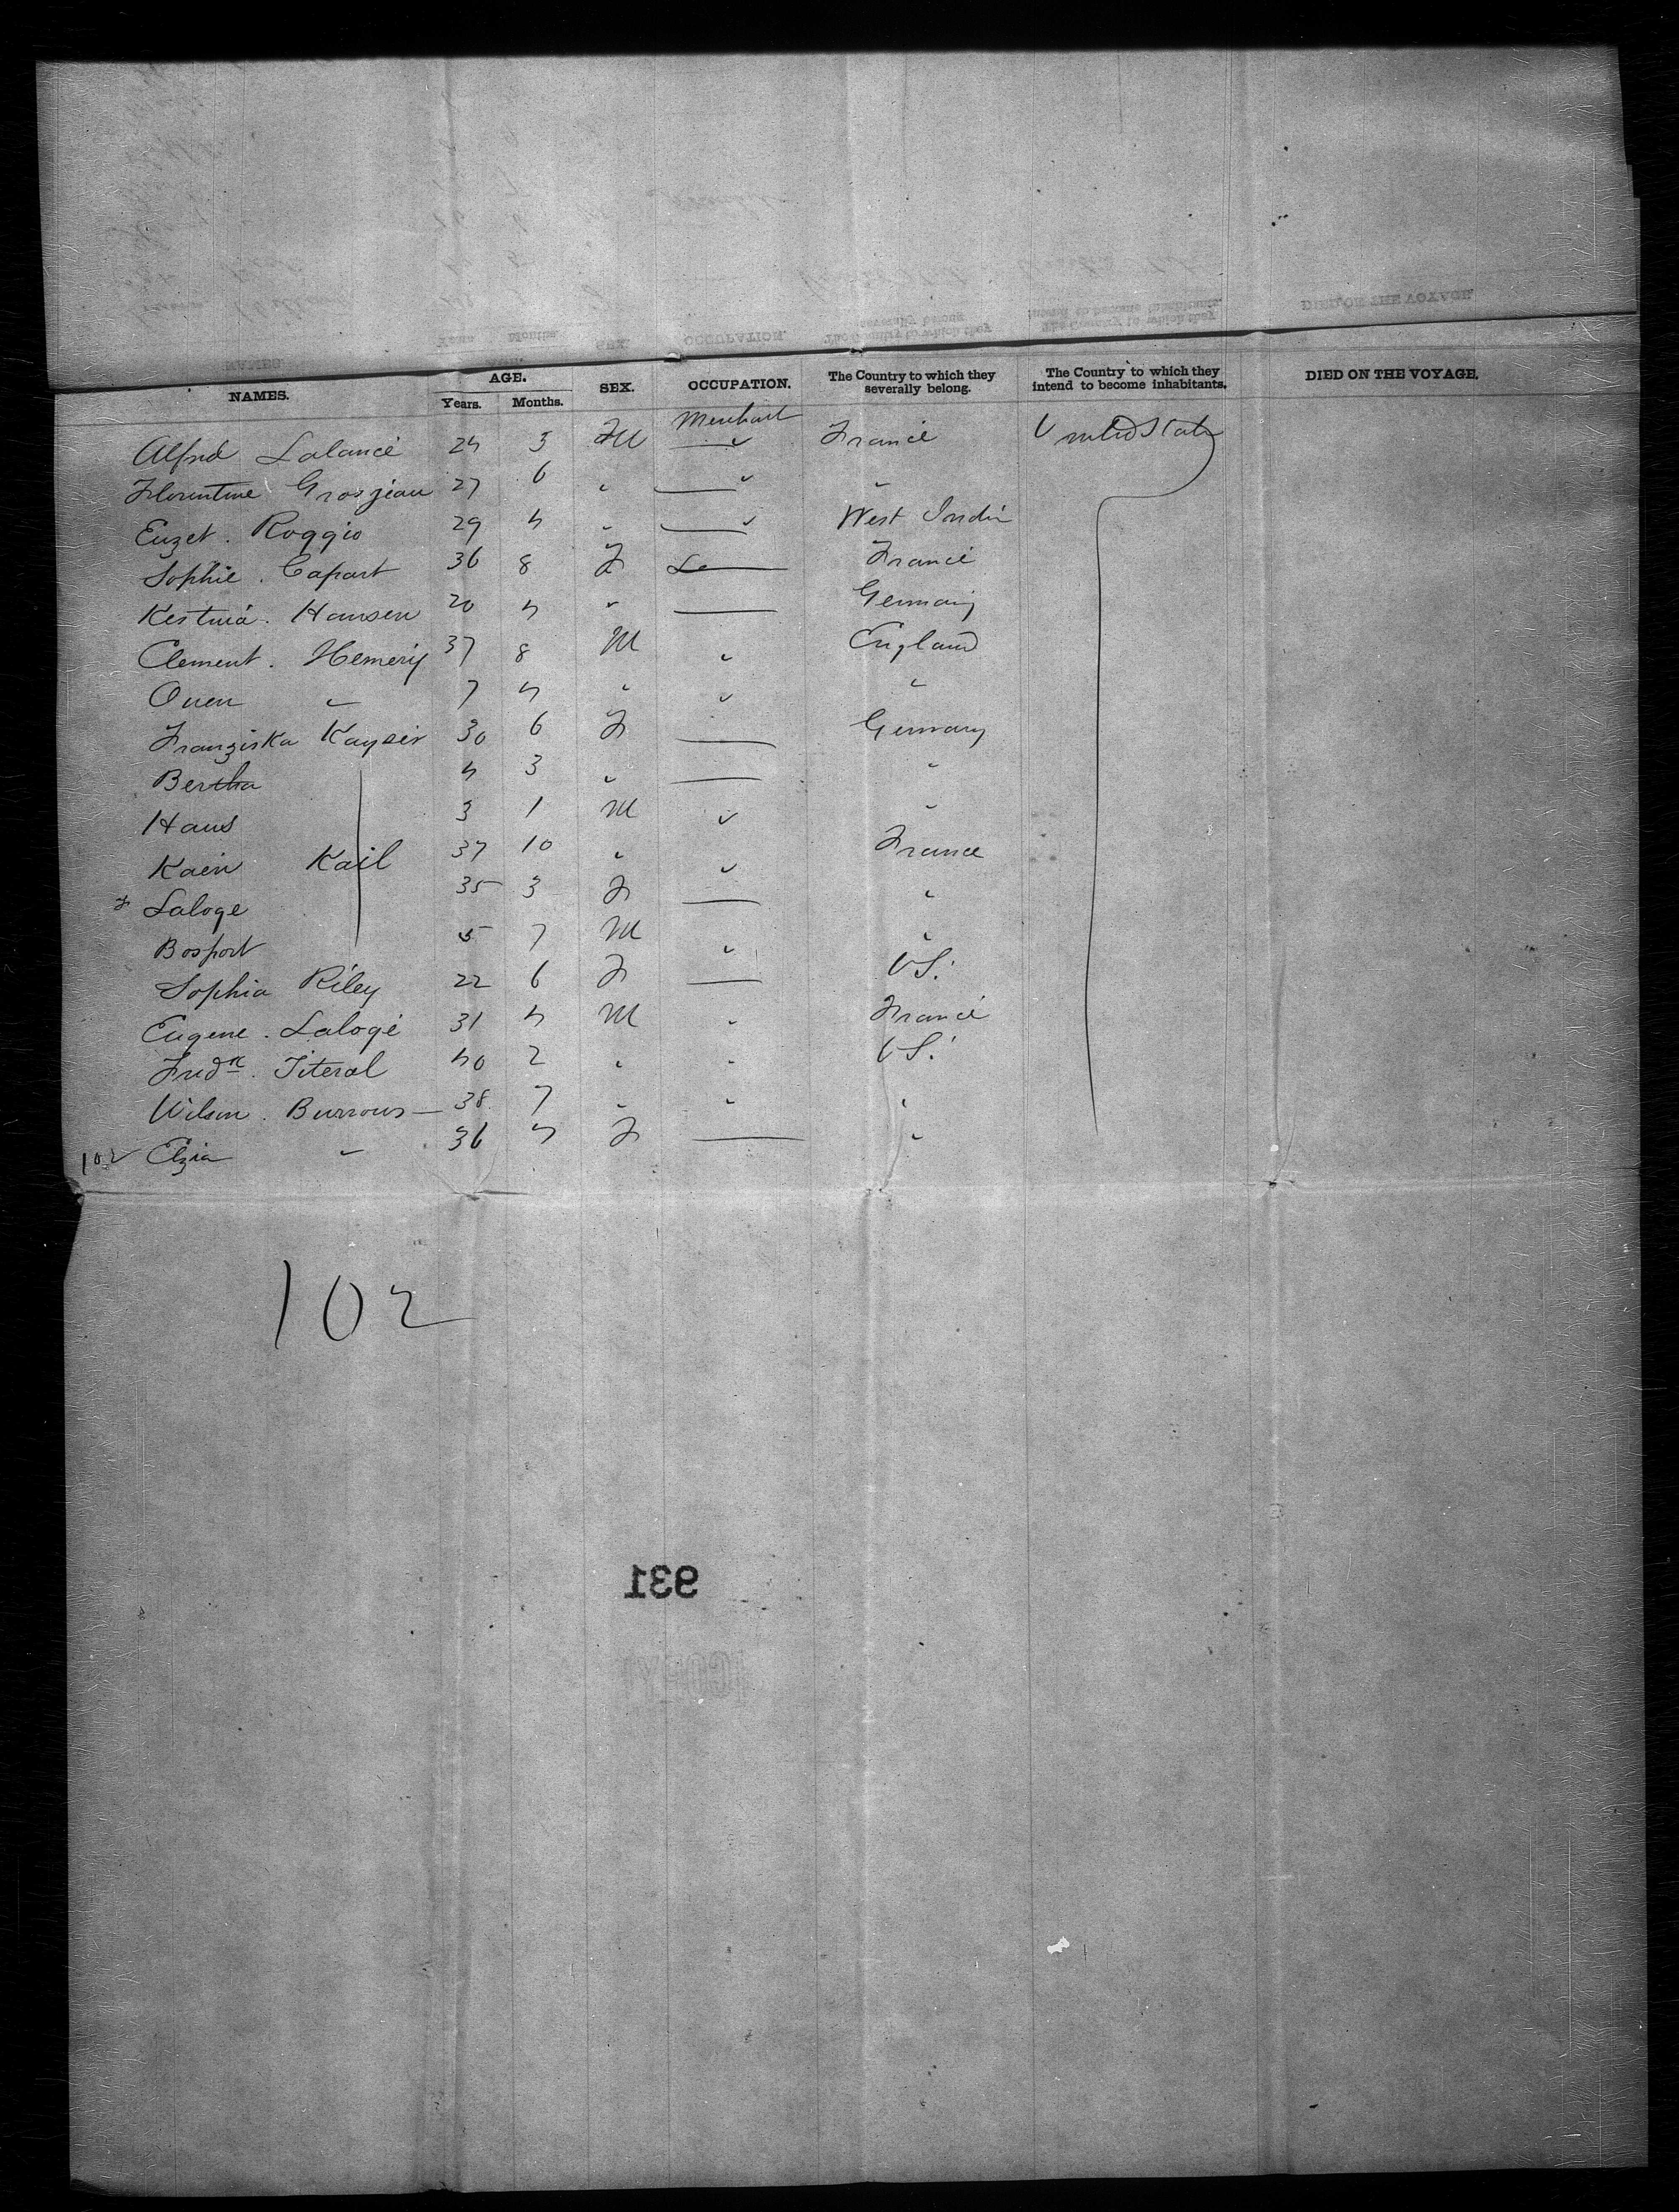 NAMES. AGE. Years. Months. SEX. OCCUPATION. The Country to which they severally belong. The Country to which they intend to become inhabitants. DIED ON THE VOYAGE.
Merchant
Alfred Lalancé 24 3 M " France United States
Florentine Grosjean 27 6 " " "
Euzet. Roggio 29 4 " " West Indi
Sophie. Capart 36 8 F France
Hansen 20 4 " Germany
Clement. Hemery 37 8 M " England
Owen " 7 4 " " "
Franziska Kayser 30 6 F Germany
Bertha 4 3 " "
Hans 3 1 M " "
Kain Kail 37 10 " " France
Laloge 35 3 F "
Bosport 5 7 M " "
Sophia Riley 22 6 F US.
Eugene. Lalogé 31 4 M " France
Fredk. Titeral 40 2 " " US.
Wilson. Burrows 38 7 " " "
102 Elzia " 36 4 F "
102
931